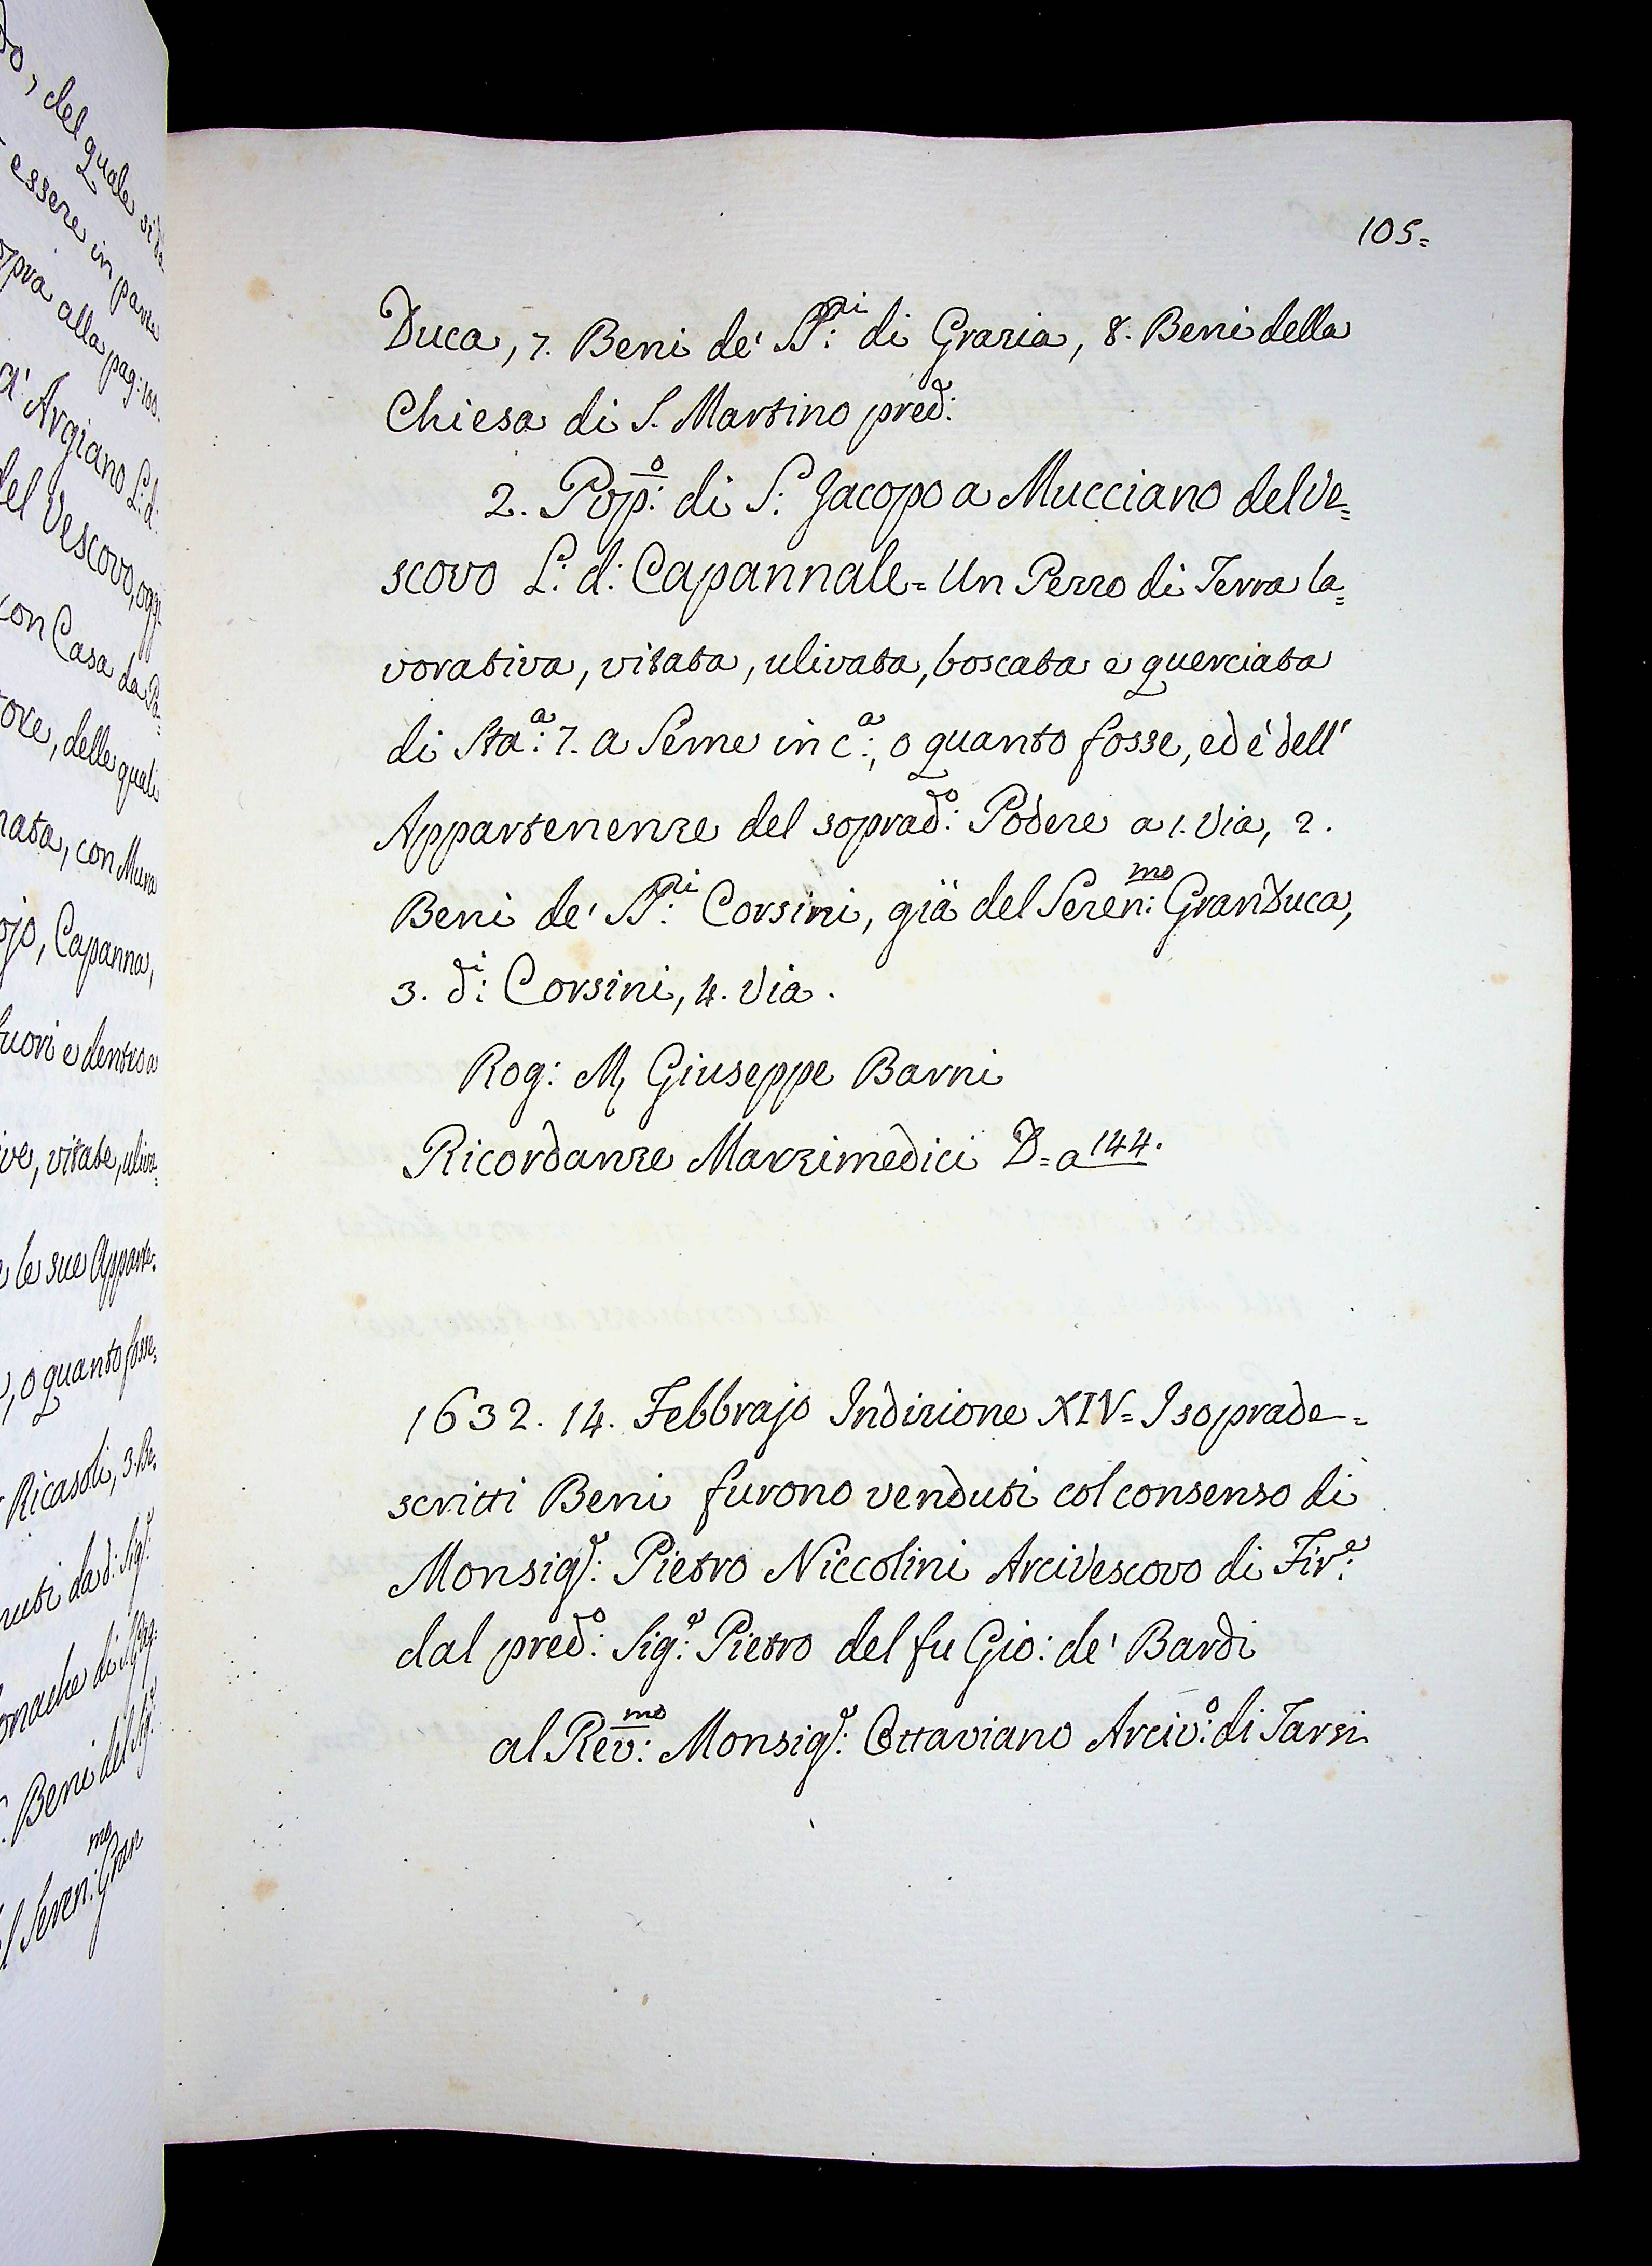 do, del quale si dà
essere in parte
opra alla pag: 100.
d' Argiano L: d:
del Vescovo, oggi
con Casa da Pa=
tore, delle quali
nata, con Mura
ojo, Capanna,
fuori e dentro a
ive, vitate, uliva=
e le sue Apparte=
, o quanto fosse,
Ricasoli, 3. Be=
nuti da d: Sigr:
onache di S.
Beni del Sigr:
l Seren:mo Gran
105=
Duca, 7. Beni de' SS:ri di Grazia, 8. Beni della
Chiesa di S. Martino pred:
2. Pop:o di S: Jacopo a Mucciano del Ve=
scovo L: d: Capannale= Un Pezzo di Terra la=
vorativa, vitata, ulivata, boscata e querciata
di Sta:a 7. a Seme in c:a, o quanto fosse, ed é dell'
Appartenenze del soprad:o Podere a 1. Via, 2.
Beni de' SS:ri Corsini, già del Seren:mo GranDuca,
3. d:i Corsini, 4. Via.
Rog: M, Giuseppe Barni
Ricordanze Marzimedici D= a 144.
1632. 14. Febbrajo Indizione XIV= I soprade=
scritti Beni furono venduti col consenso di
Monsigr: Pietro Niccolini Arcivescovo di Fir:e
dal pred:o Sig:r Pietro del fu Gio: de' Bardi
al Rev:mo Monsigr: Ottaviano Arciv:o di Tarsi